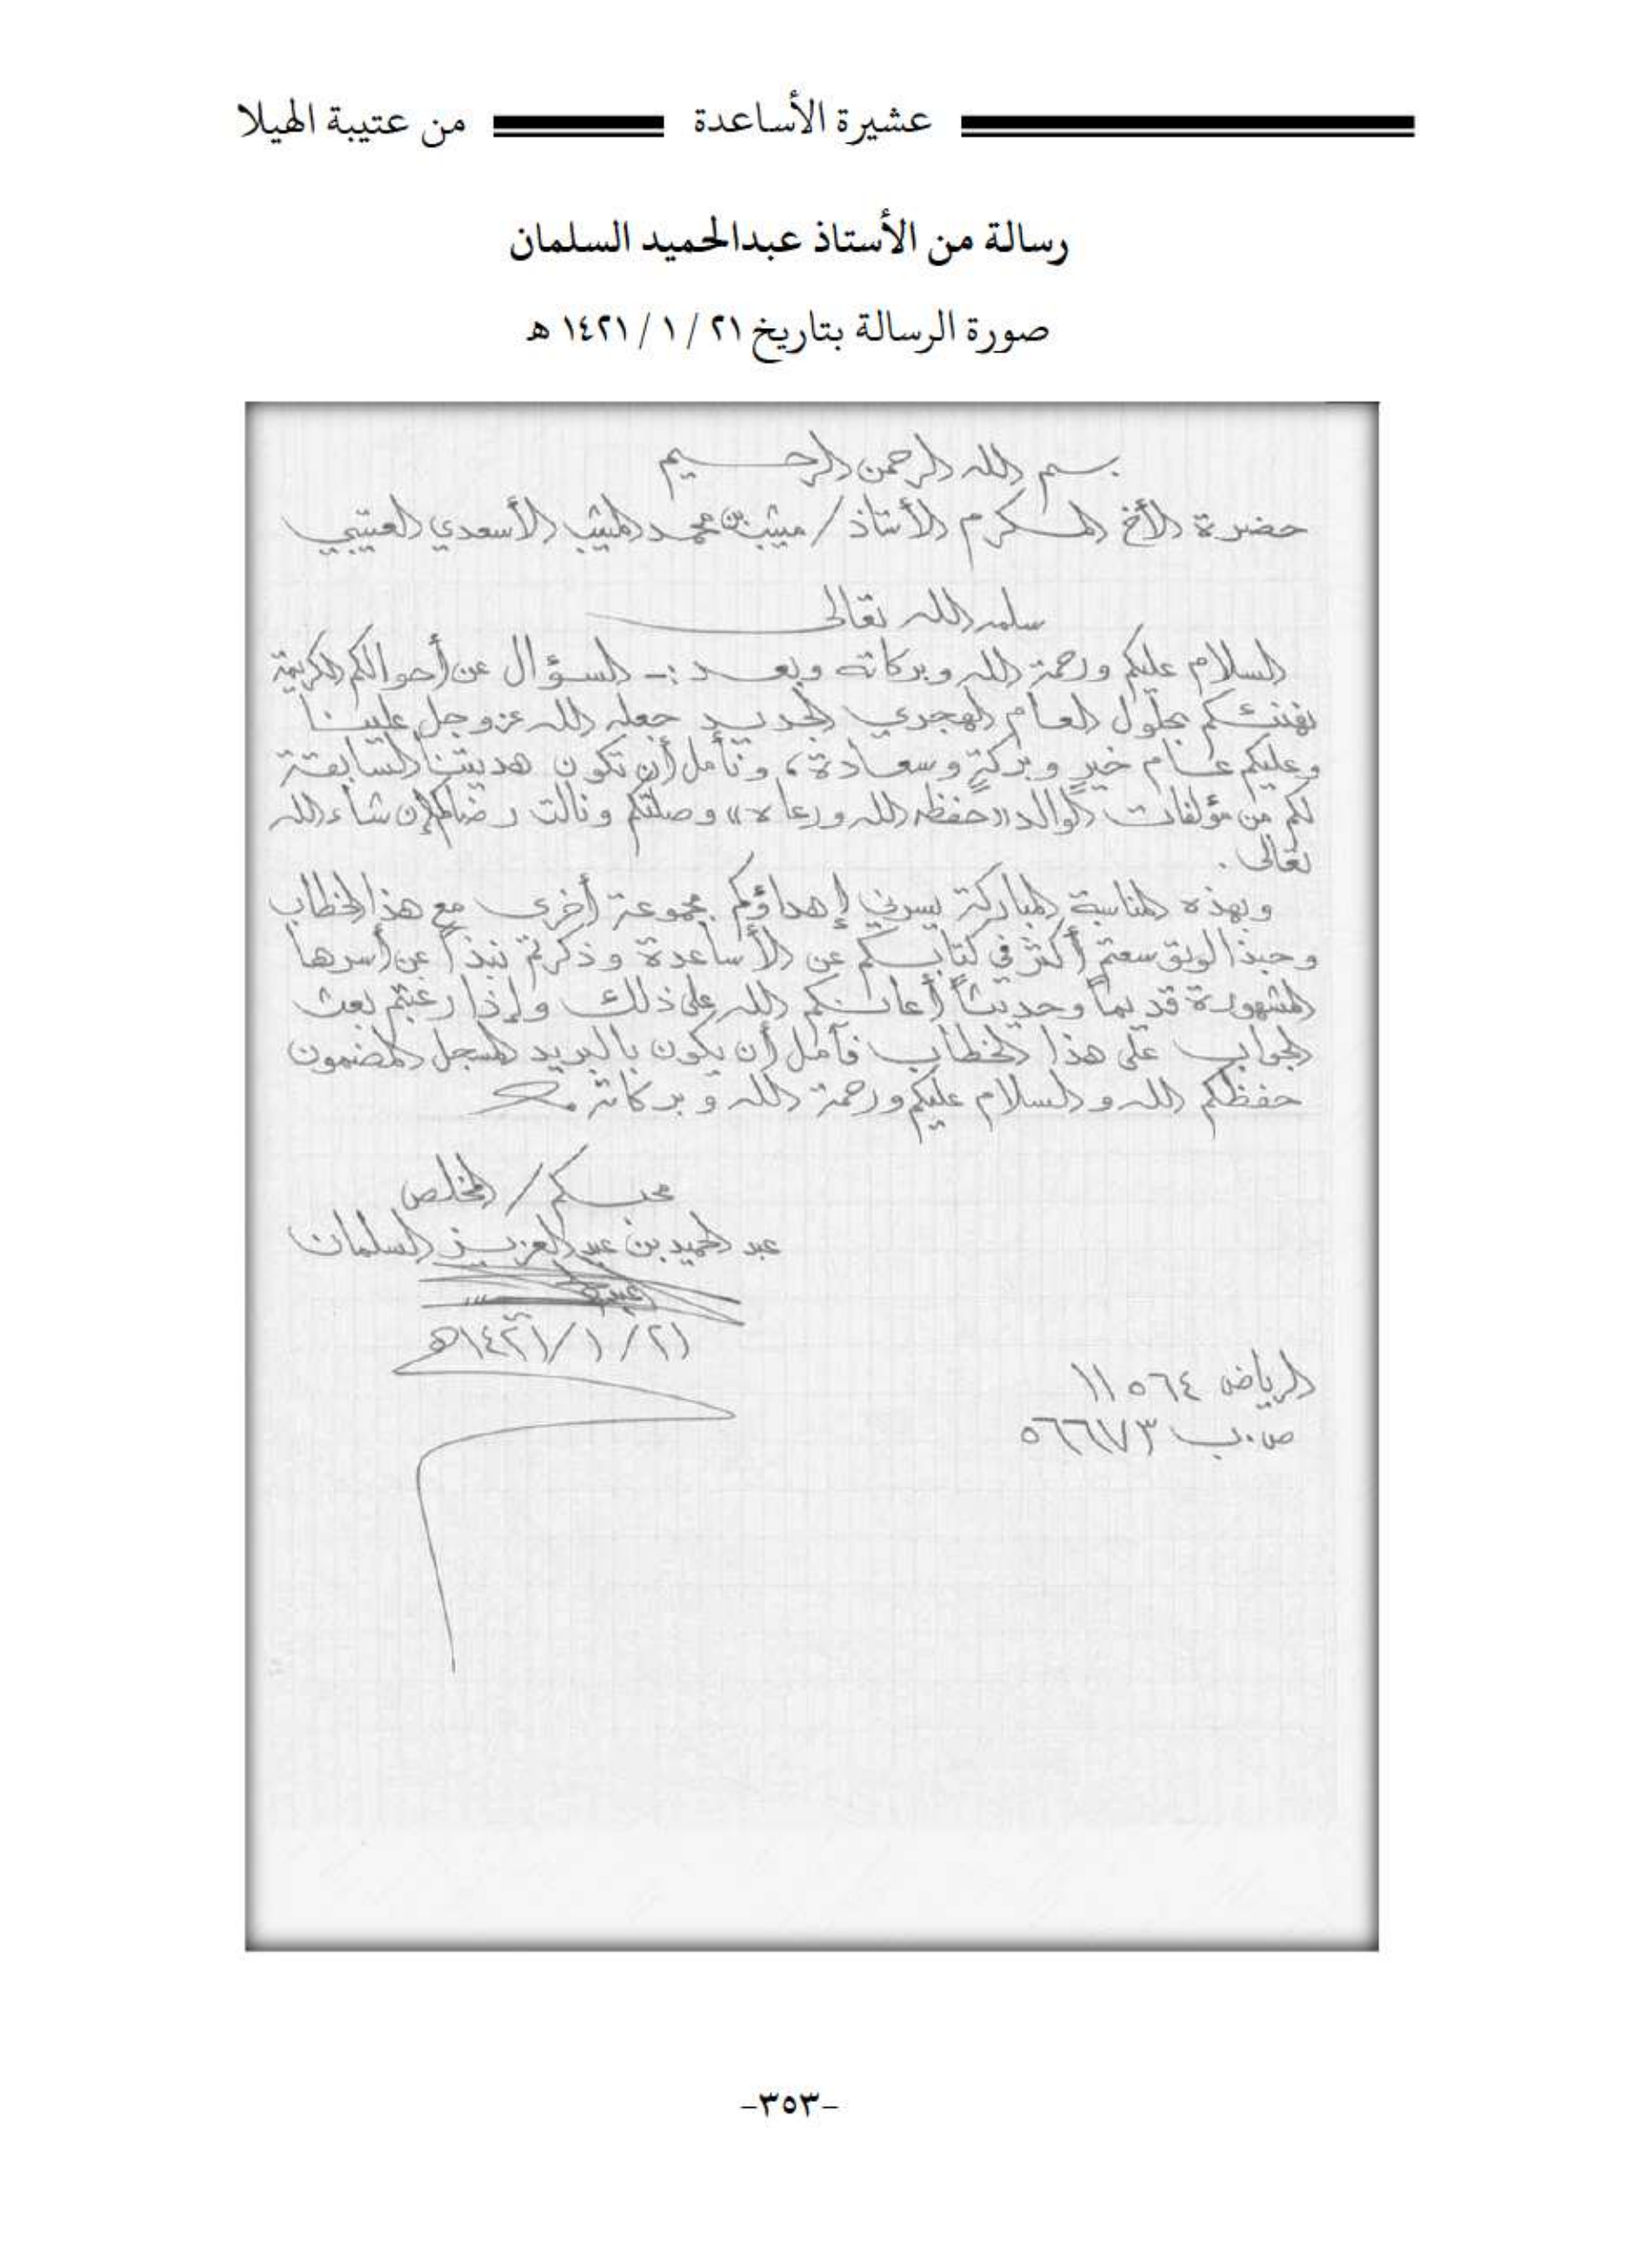 عشيرة الأساعدة من عتيبة الهيلا
رسالة من الأستاذ عبدالحميد السلمان
صورة الرسالة بتاريخ ٢١ / ١ / ١٤٢١ هـ
بسم الله الرحمن الرحيم
حضرة الأخ المكرم الأستاذ / ميثب بن محمد الميثب الأسعدي العتيبي
سلمه الله تعالى
السلام عليكم ورحمة الله وبركاته وبعد :- السؤال عن أحوالكم الكريمة
نهنئكم بحلول العام الهجري الجديد جعله الله عز وجل علينا
وعليكم عام خيرٍ وبركةٍ وسعادة، ونأمل أن تكون هديتنا السابقة
لكم من مؤلفات الوالد «حفظه الله ورعاه» وصلتكم ونالت رضاكم إن شاء الله
تعالى .
وبهذه المناسبة المباركة يسرني إهداؤكم مجموعة أخرى مع هذا الخطاب
وحبذا لو توسعتم أكثر في كتابكم عن الأساعدة وذكرتم نبذاً عن أسرها
المشهورة قديماً وحديثاً أعانكم الله على ذلك وإذا رغبتم بعث
الجواب على هذا الخطاب فآمل أن يكون بالبريد المسجل المضمون
حفظكم الله والسلام عليكم ورحمة الله وبركاته
محبكم / المخلص
عبد الحميد بن عبد العزيز السلمان
٢١ / ١ / ١٤٢١هـ
الرياض ١١٥٦٤
ص.ب ٥٦٦٧٣
-٣٥٣-